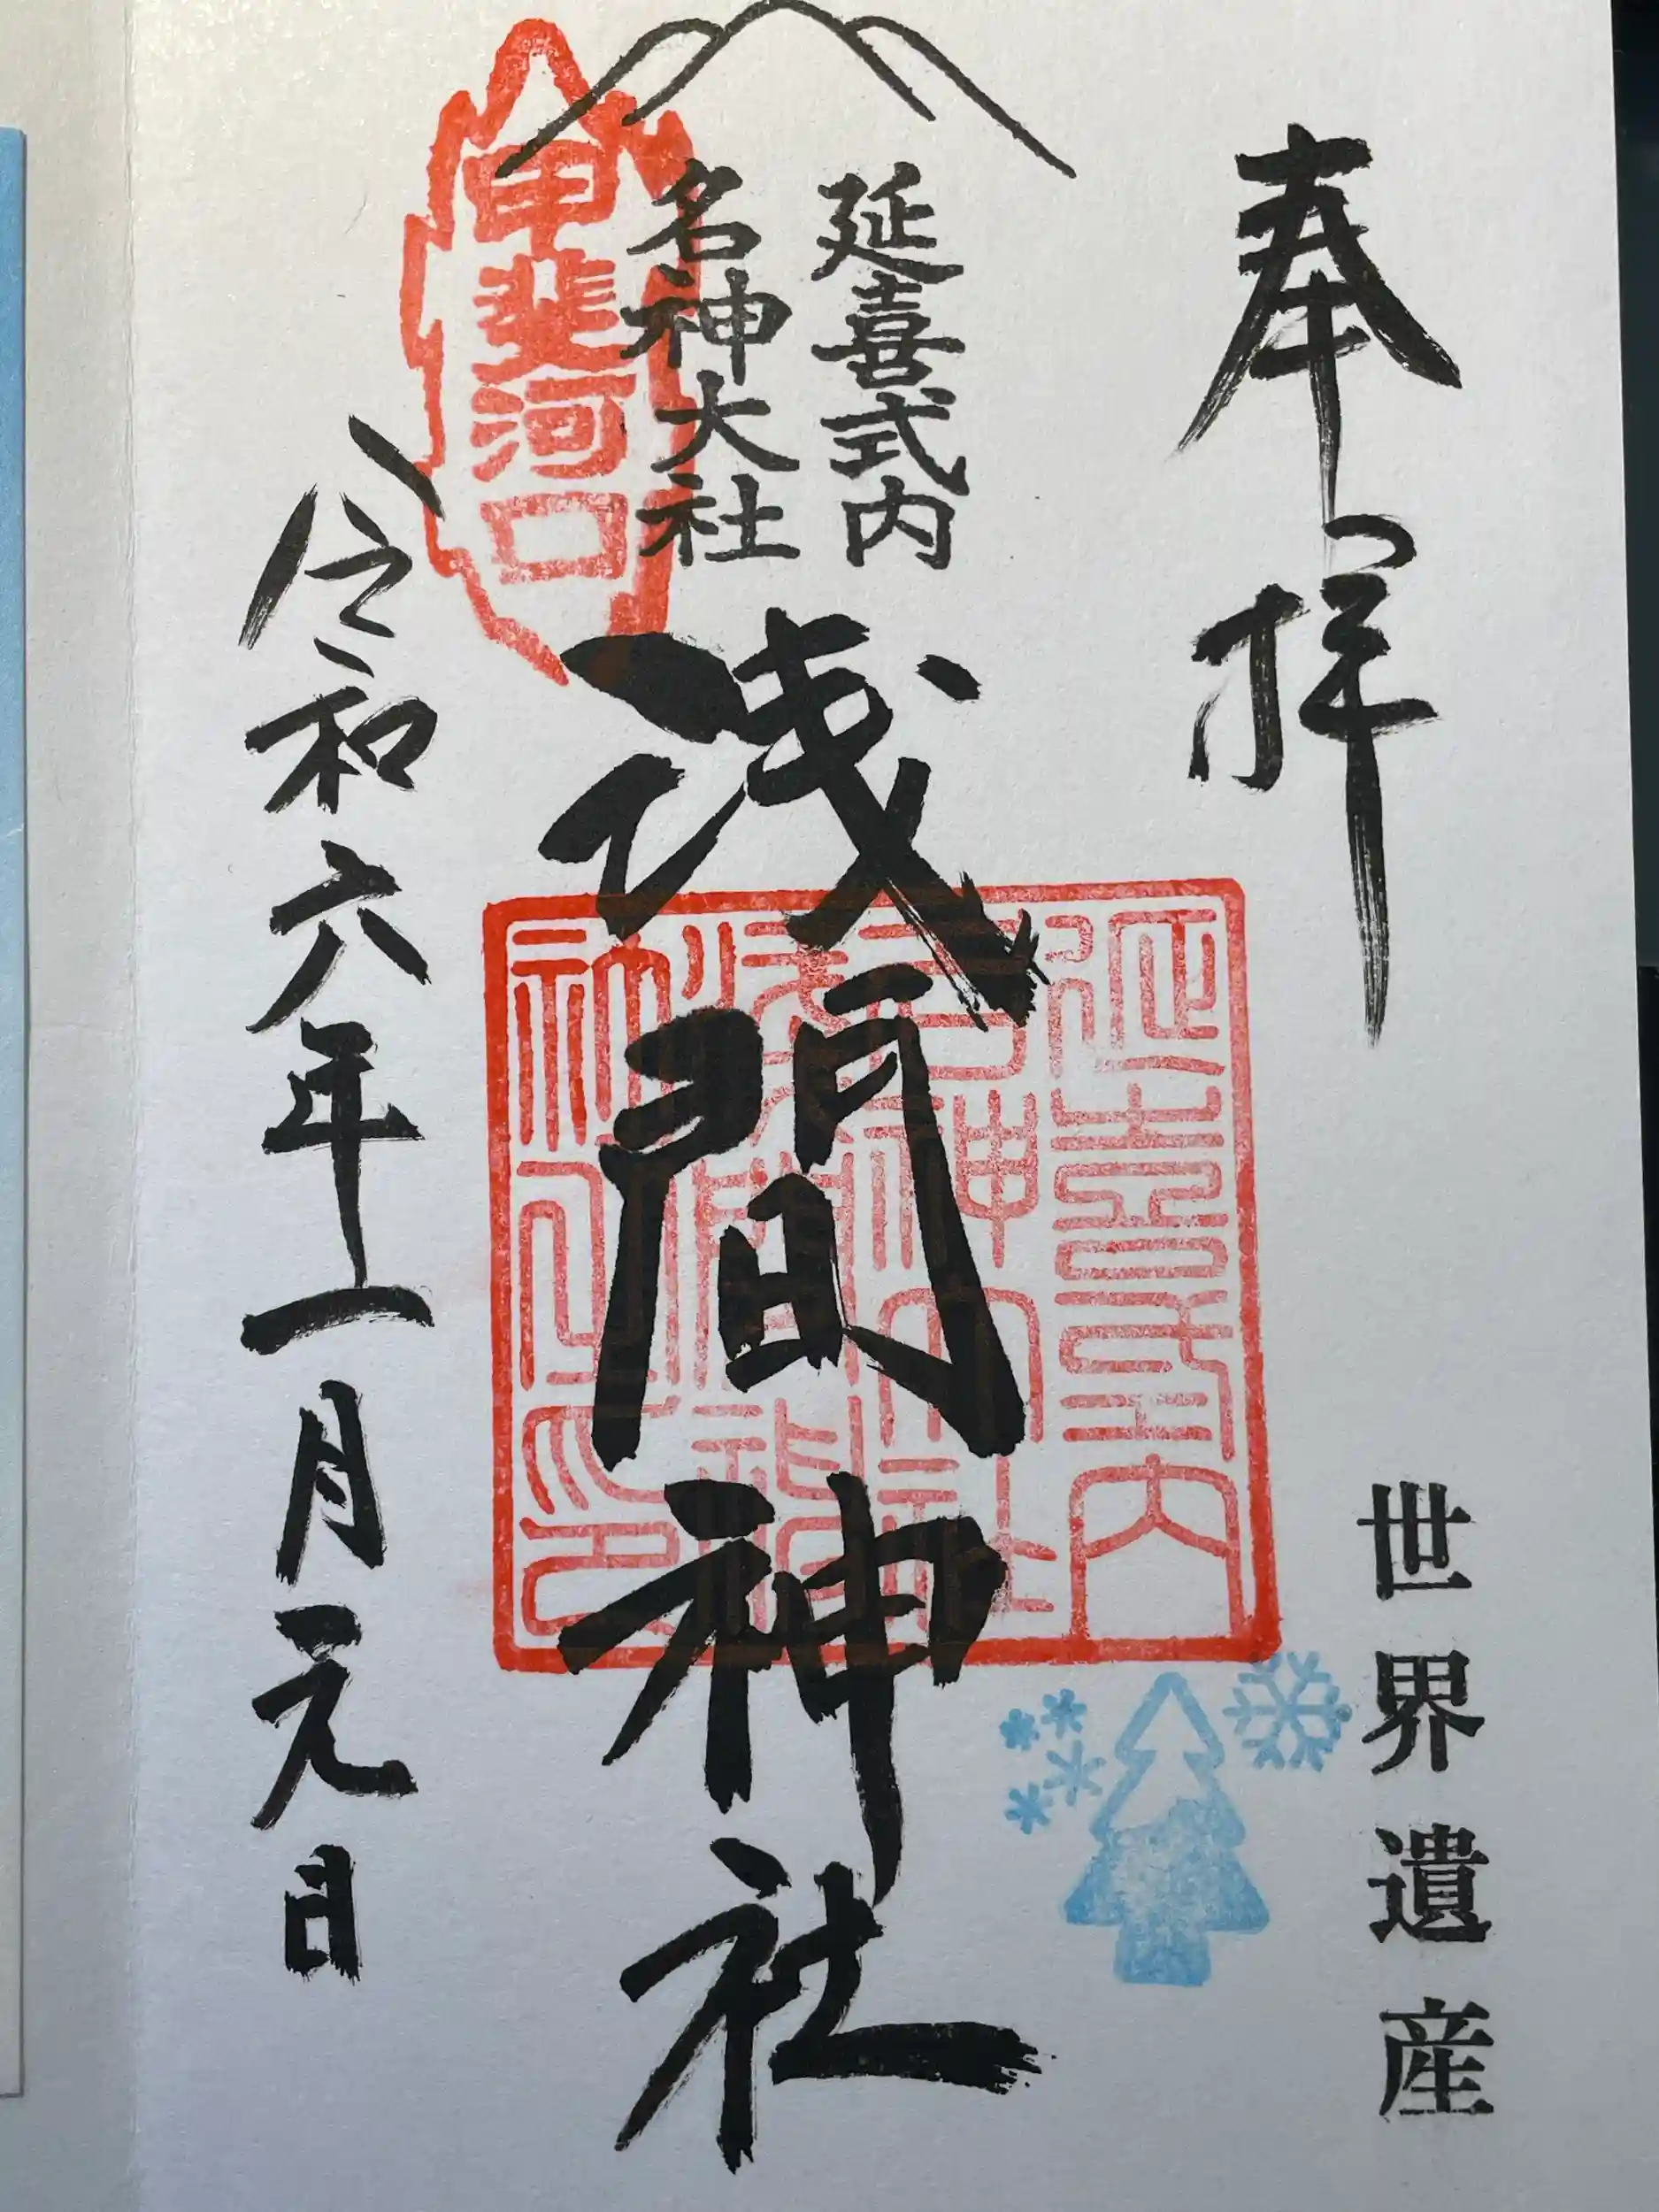 奉拝
世界遺産
延喜式内
名神大社
浅間神社
甲斐河口
延喜式内
名神大社
令和六年一月元日